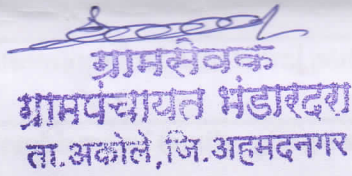 ग्रामसेवक
ग्रामपंचायत भंडारदरा
ता.अकोले,जि.अहमदनगर